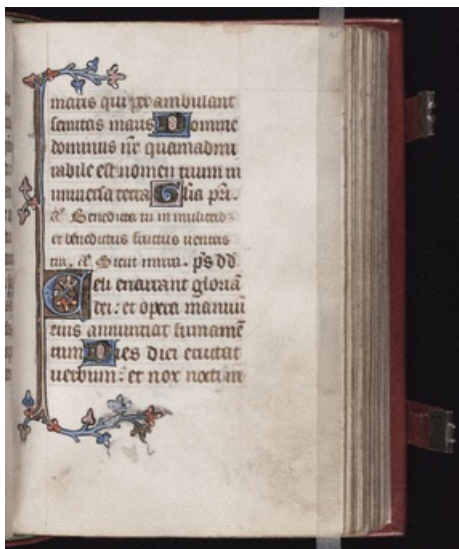 maris qui perambulant
semitas maris Domine
dominus nr quamadmi
rabile est nomen tuum in
universa terra Glia pri.
a Benedicta tu in mulierib
et benedictus fructus ventris
tui. a Sicut mirra. ps dd
Celi enarrant gloriā
dei: et opera manuū
eius annunciat firmamē
tum Dies diei eructat
verbum: et nox nocti in